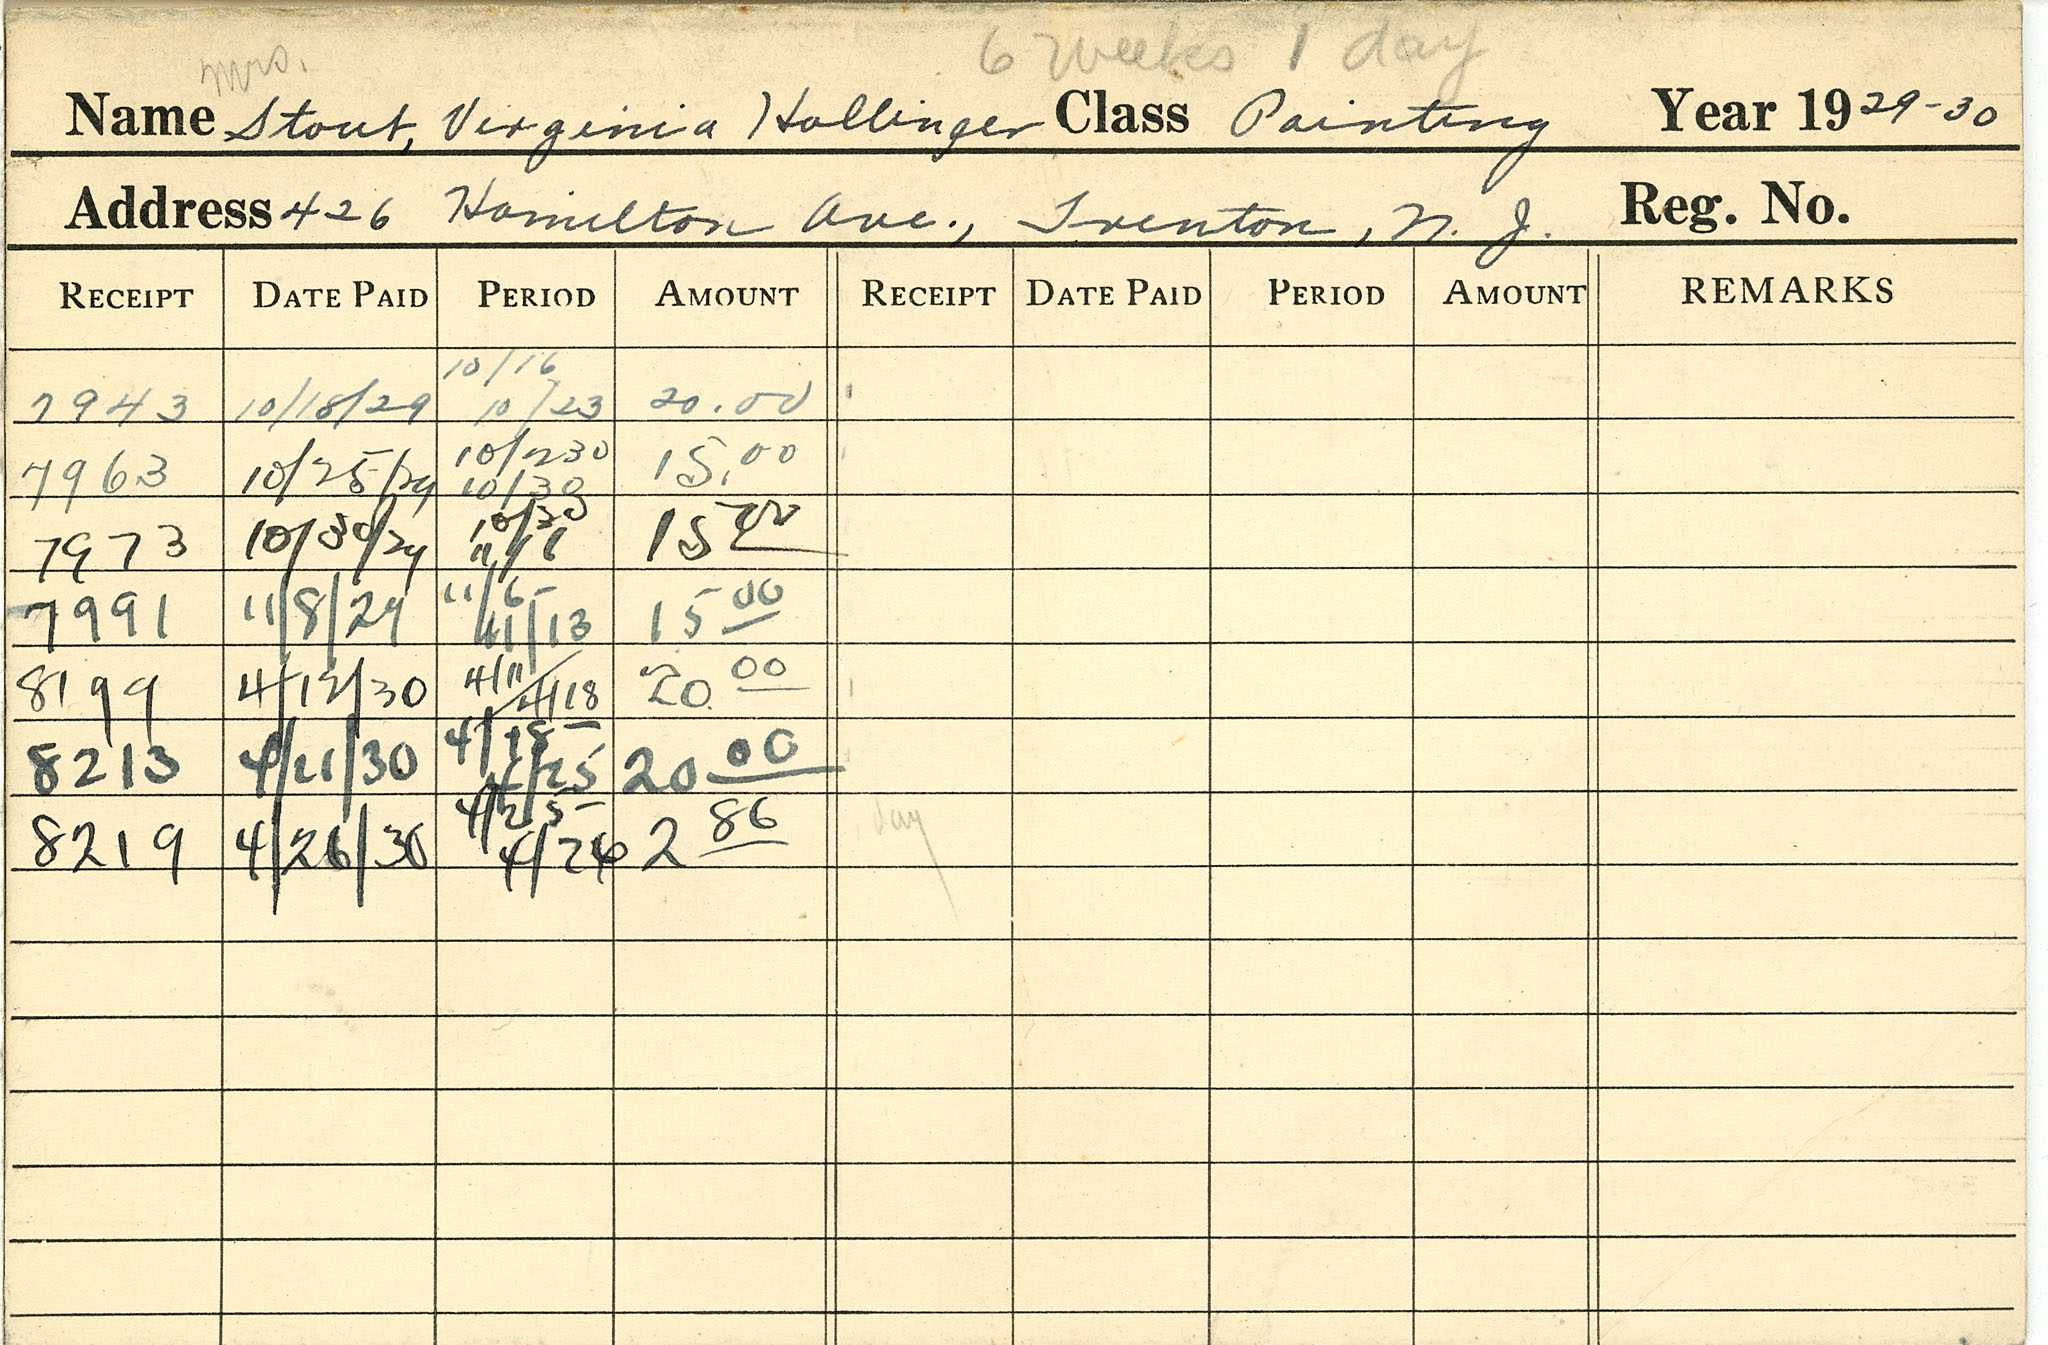 6 weeks 1 day
Mrs.
Name Stout, Virginia Hollinger Class Painting Year 1929-30
Address 426 Hamilton Ave., Trenton, N. J. Reg. No.
RECEIPT DATE PAID PERIOD AMOUNT RECEIPT DATE PAID PERIOD AMOUNT REMARKS
10/16
7943 10/18/29 10/23 20.00
10/230
7963 10/25/29 10/30 15.00
10/30
7973 10/30/29 11/6 15 00
11/6-
7991 11/8/29 11/13 15 00
4/11
8199 4/12/30 4/18 20 00
4/18-
8213 4/21/30 4/25 20 00
4/25-
8219 4/26/30 4/26 2 86 day